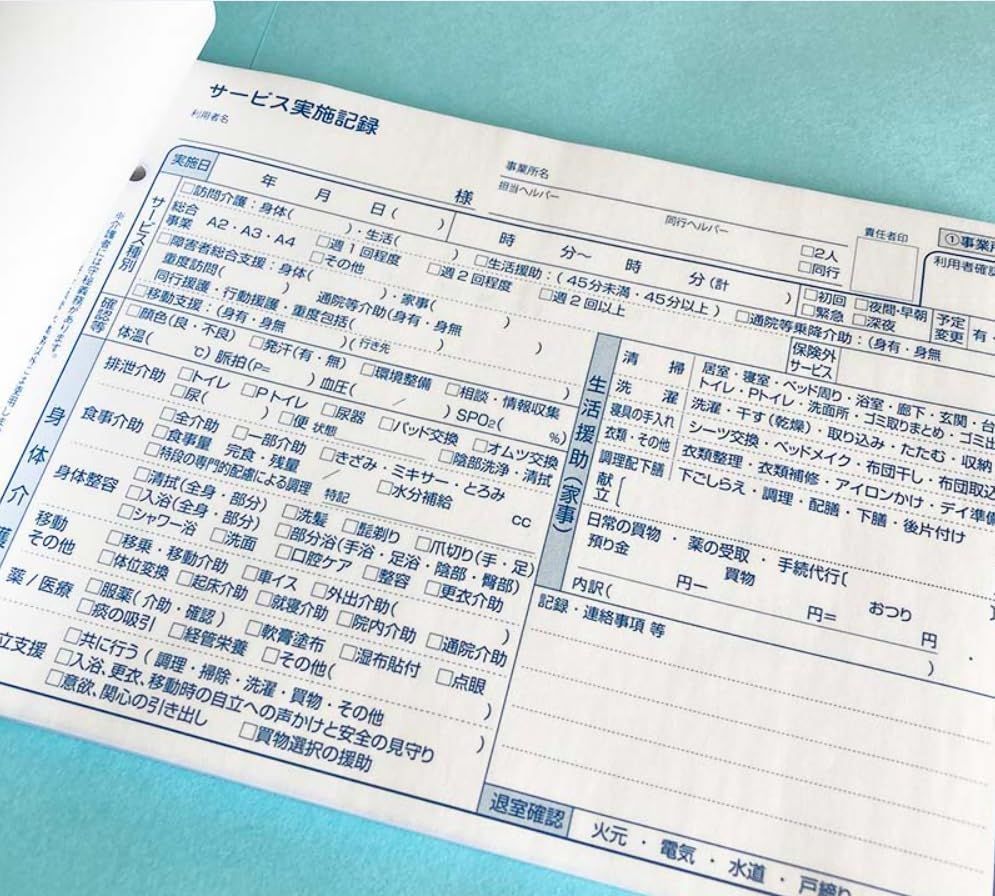 サービス実施記録
利用者名
様
事業所名
担当ヘルパー
同行ヘルパー
□2人
□同行
責任者印
①事業所
利用者確認
実施日 年 月 日( ) 時 分〜 時 分(計 )
□初回 □夜間・早朝
□緊急 □深夜
予定変更 有・
サービス種別
□訪問介護：身体( )・生活( ) □生活援助：(45分未満・45分以上) □通院等乗降介助：(身有・身無
総合事業 A2・A3・A4 □週1回程度 □週2回程度 □週2回以上
□その他
□障害者総合支援：身体( )・家事( )
重度訪問( ) 通院等介助(身有・身無 )
同行援護・行動援護・重度包括( )
□移動支援：(身有・身無 )(行き先 )
保険外サービス
確認等
□顔色(良・不良) □発汗(有・無) □環境整備 □相談・情報収集
体温( ℃) 脈拍(P= ) 血圧( / ) SPO₂( %)
身体介護
排泄介助 □トイレ □Pトイレ □尿器 □パッド交換 □オムツ交換
□尿( ) □便 状態 □陰部洗浄・清拭
食事介助 □全介助 □一部介助 □きざみ・ミキサー・とろみ
□食事量 完食・残量 / □水分補給 cc
□特段の専門的配慮による調理 特記
身体整容 □清拭(全身・部分) □洗髪 □髭剃り □爪切り(手・足)
□入浴(全身・部分) □部分浴(手浴・足浴・陰部・臀部)
□シャワー浴 □洗面 □口腔ケア □整容 □更衣介助
移動 その他 □移乗・移動介助 □車イス □外出介助( )
□体位変換 □起床介助 □就寝介助 □院内介助 □通院介助
薬/医療 □服薬(介助・確認) □軟膏塗布 □湿布貼付 □点眼
□痰の吸引 □経管栄養 □その他( )
立支援 □共に行う(調理・掃除・洗濯・買物・その他 )
□入浴、更衣、移動時の自立への声かけと安全の見守り
□意欲、関心の引き出し □買物選択の援助
生活援助(家事)
清掃 居室・寝室・ベッド周り・浴室・廊下・玄関・台
トイレ・Pトイレ・洗面所・ゴミ取りまとめ・ゴミ出
洗濯 洗濯・干す(乾燥)・取り込み・たたむ・収納
寝具の手入れ シーツ交換・ベッドメイク・布団干し・布団取込
衣類・その他 衣類整理・衣類補修・アイロンかけ・デイ準備
調理配下膳 下ごしらえ・調理・配膳・下膳・後片付け
献立[
日常の買物・薬の受取・手続代行[
預り金 買物 おつり
円ー 円= 円
内訳( )
記録・連絡事項 等
退室確認 火元・電気・水道・戸締り